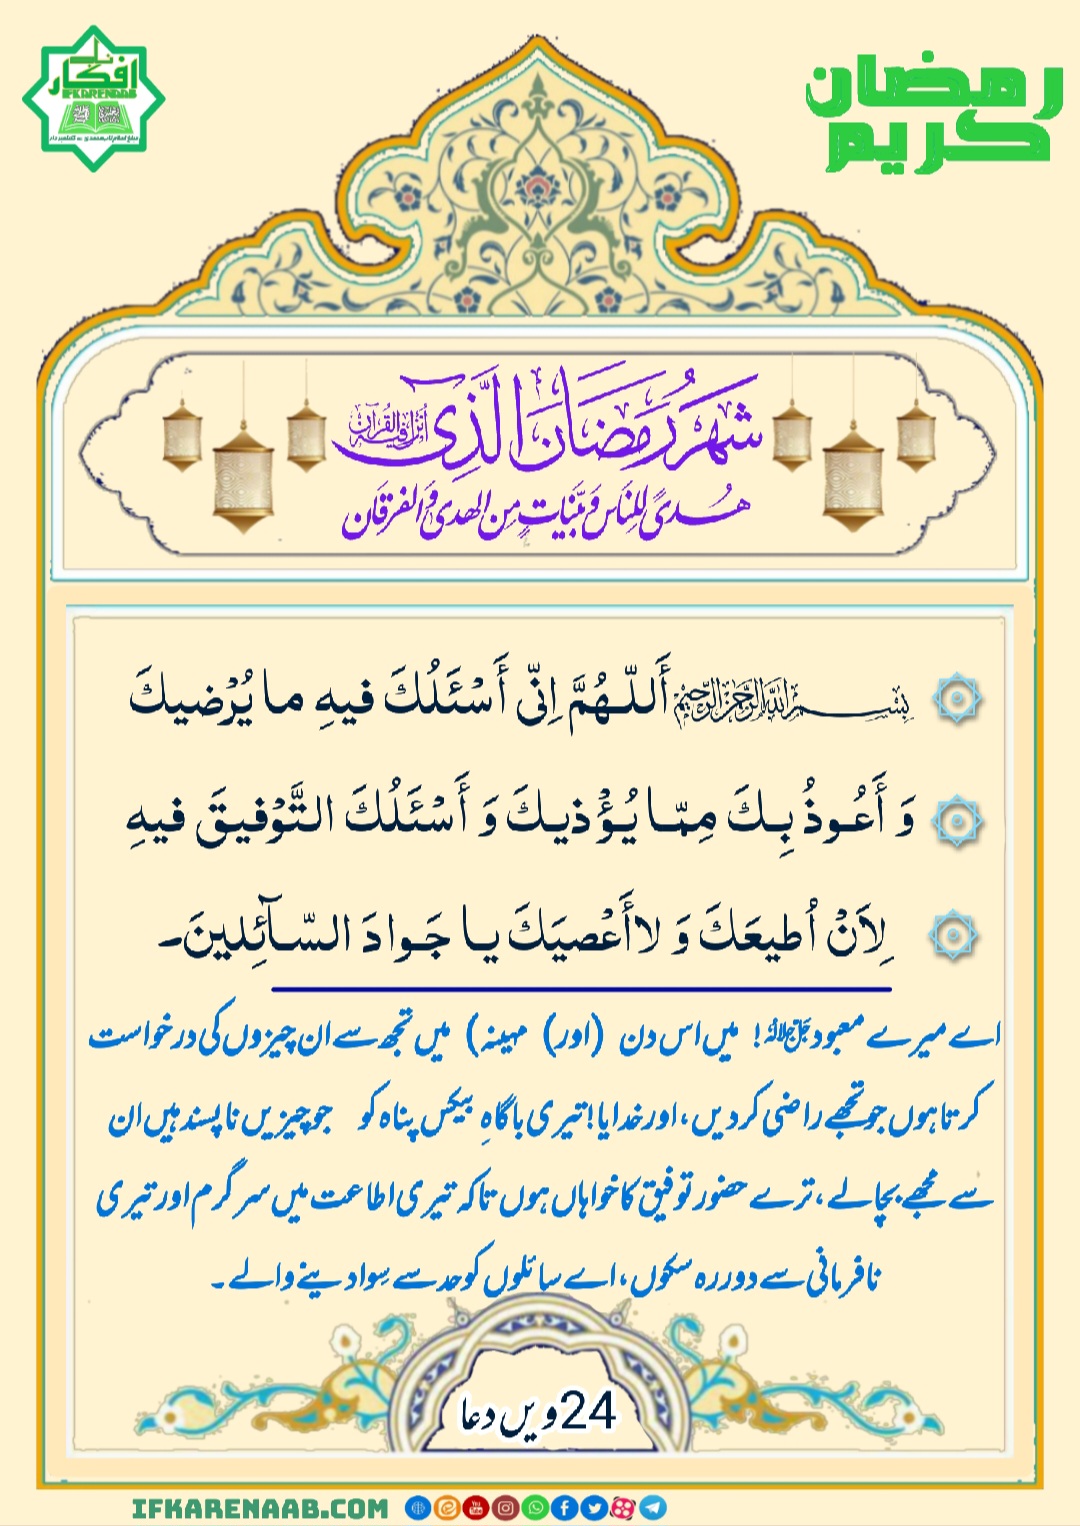 افکار ناب
IFKARENAAB
رمضان
کریم
شَهْرُ رَمَضَانَ الَّذِیٓ اُنْزِلَ فِیْهِ الْقُرْآن
هُدًی لِلنَاس وَبَیِّنَاتٍ مِنَ الهدی وَالفرقَان
بِسْمِ اللهِ الرَّحْمٰنِ الرَّحِیْمِ أَللّـهُمَّ اِنّی أَسْئَلُكَ فیهِ ما یُرْضیكَ
وَ أَعُـوذُ بِـكَ مِمّـا یُـؤْذیـكَ وَ أَسْئَلُكَ التَّوْفیـقَ فیهِ
لِاَنْ اُطیعَكَ وَ لاأَعْصیَكَ یـا جَـوادَ السّـآئِلینَ۔
اے میرے معبود جَلَّ جَلَالُہٗ! میں اس دن (اور) مہینہ) میں تجھ سے ان چیزوں کی درخواست
کرتا ہوں جو تجھے راضی کردیں، اور خدایا! تیری باگاہِ بیکس پناہ کو جو چیزیں ناپسند ہیں ان
سے مجھے بچالے، ترے حضور توفیق کا خواہاں ہوں تاکہ تیری اطاعت میں سرگرم اور تیری
نافرمانی سے دور رہ سکوں، اے سائلوں کو حد سے سِوا دینے والے۔
24ویں دعا
IFKARENAAB.COM